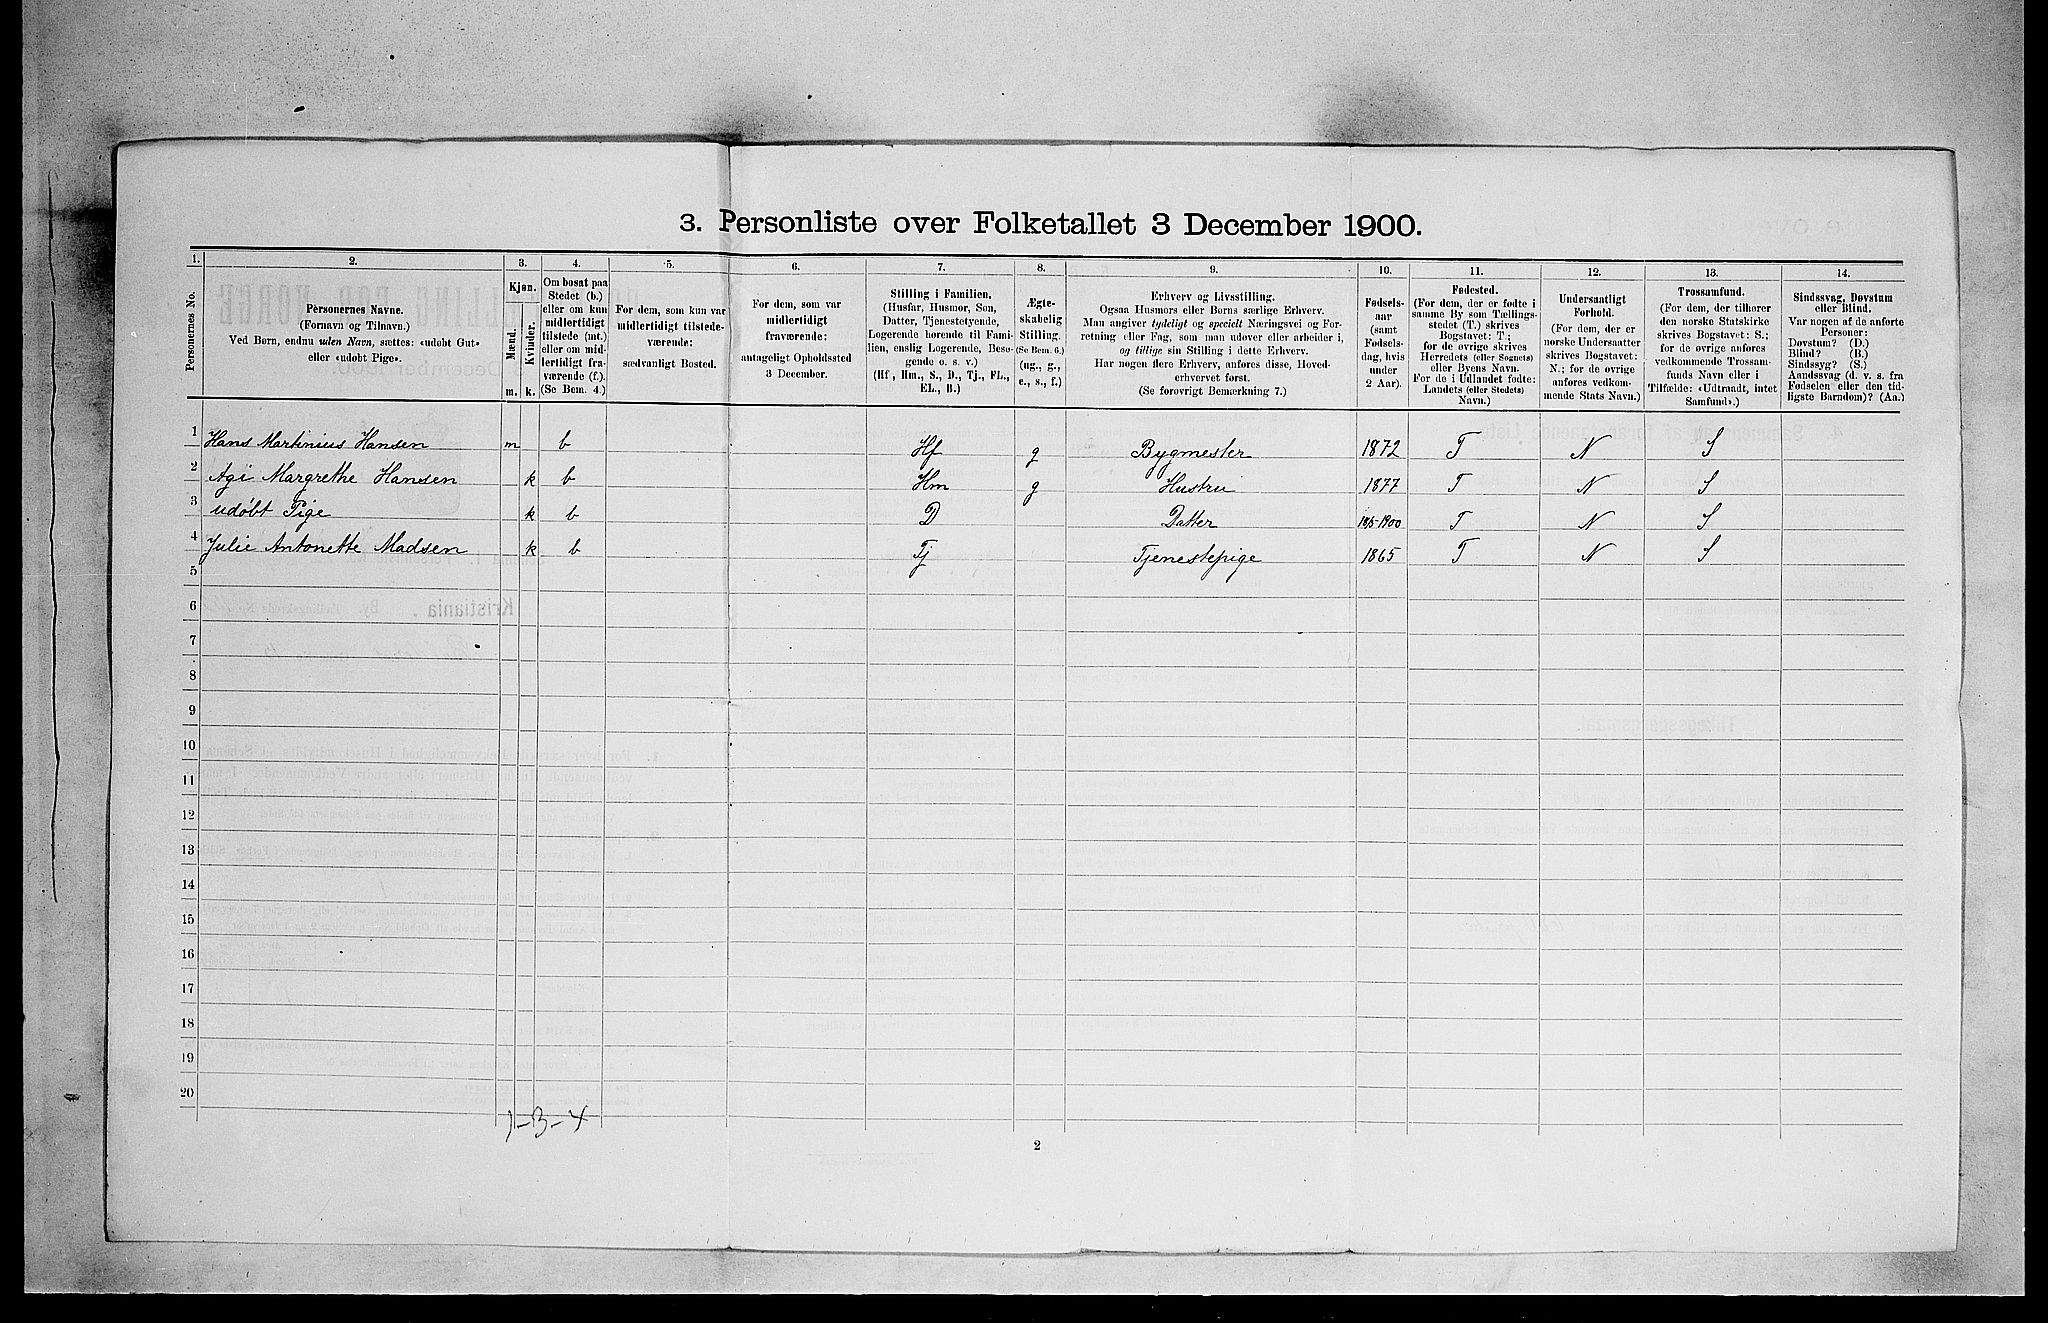 3. Personliste over Folketallet 3 December 1900.
1. 2. 3. 4. 5. 6. 7. 8. 9. 10. 11. 12. 13. 14.
Personernes No.
Personernes Navne.
(Fornavn og Tilnavn.)
Ved Børn, endnu uden Navn, sættes: «udøbt Gut»
eller «udøbt Pige».
Kjøn.
Mænd.
Kvinder.
m. k.
Om bosat paa
Stedet (b.)
eller om kun
midlertidigt
tilstede (mt.)
eller om mid-
lertidigt fra-
værende (f.).
(Se Bem. 4.)
For dem, som kun var
midlertidigt tilstede-
værende:
sædvanligt Bosted.
For dem, som var
midlertidigt
fraværende:
antageligt Opholdssted
3 December.
Stilling i Familien.
(Husfar, Husmor, Søn,
Datter, Tjenestetyende,
Logerende hørende til Fami-
lien, enslig Logerende, Besø-
gende o. s. v.)
(Hf, Hm., S., D., Tj., FL.,
EL., B.)
Ægte-
skabelig
Stilling.
(Se Bem. 6.)
(ug., g.,
e., s., f.)
Erhverv og Livsstilling.
Ogsaa Husmors eller Børns særlige Erhverv.
Man angiver tydeligt og specielt Næringsvei og For-
retning eller Fag, som man udøver eller arbeider i,
og tillige sin Stilling i dette Erhverv.
Har nogen flere Erhverv, anføres disse, Hoved-
erhvervet først.
(Se forøvrigt Bemærkning 7.)
Fødsels-
aar
(samt
Fødsels-
dag, hvis
under
2 Aar).
Fødested.
(For dem, der er fødte i
samme By som Tællings-
stedet (T.) skrives
Bogstavet: T;
for de øvrige skrives
Herredets (eller Sognets)
eller Byens Navn.
For de i Udlandet fødte:
Landets (eller Stedets)
Navn.)
Undersaatligt
Forhold.
(For dem, der er
norske Undersaatter
skrives Bogstavet:
N.; for de øvrige
anføres vedkom-
mende Stats Navn.)
Trossamfund.
(For dem, der tilhører
den norske Statskirke
skrives Bogstavet: S.;
for de øvrige anføres
vedkommende Trossam-
funds Navn eller i
Tilfælde: «Udtraadt, intet
Samfund».)
Sindssvag, Døvstum
eller Blind.
Var nogen af de anførte
Personer:
Døvstum? (D.)
Blind? (B.)
Sindssyg? (S.)
Aandssvag (d. v. s. fra
Fødselen eller den tid-
ligste Barndom)? (Aa.)
1 Hans Martinius Hansen m b Hf g Bygmester 1872 T N S
2 Agi Margrethe Hansen k b Hm g Hustru 1877 T N S
3 udøbt Pige k b D Datter 1900 T N S
4 Julie Antonette Madsen k b Tj Tjenestepige 1865 T N S
5
6
7
8
9
10
11
12
13
14
15
16
17
18
19
20
1-3-4
2